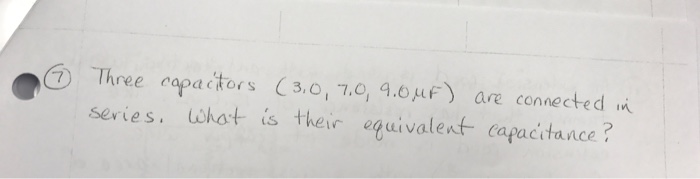 ⑦ Three capacitors (3.0, 7.0, 9.0 μF) are connected in
series. What is their equivalent capacitance?